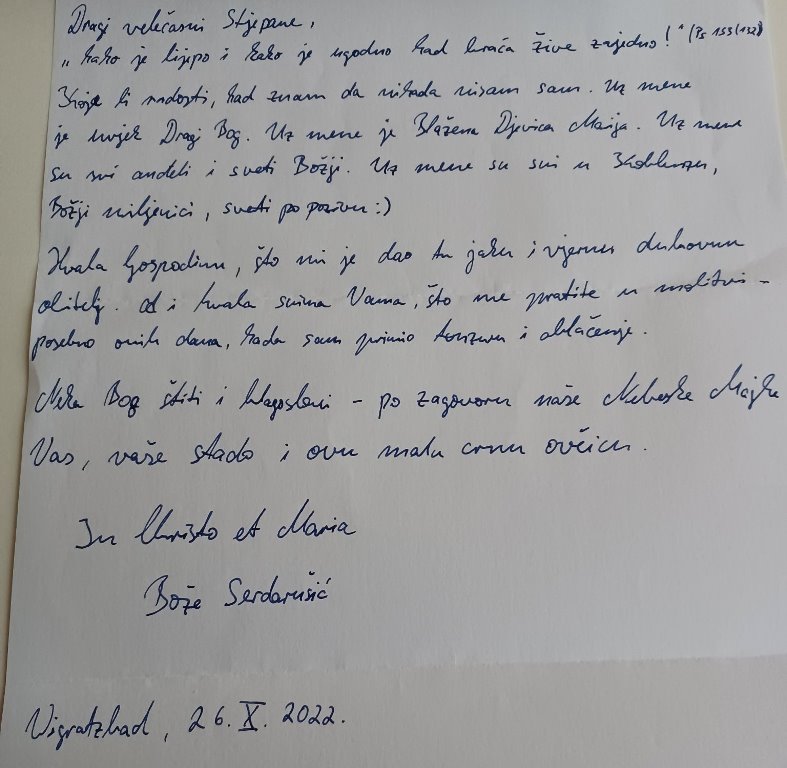 Dragi velečasni Stjepane,
„kako je lijepo i kako je ugodno kad braća žive zajedno!" (Ps 133(132))
Koje li radosti, kad znam da nikada nisam sam. Uz mene
je uvijek Dragi Bog. Uz mene je Blažena Djevica Marija. Uz mene
su svi anđeli i sveti Božji. Uz mene su svi u Koblenzu,
Božji miljenici, sveti po pozivu :)
Hvala Gospodinu, što mi je dao tu jaku i vjernu duhovnu
obitelj. i hvala svima Vama, što me pratite u molitvi -
posebno onih dana, kada sam primio tonzuru i oblačenje.
Neka Bog štiti i blagoslovi - po zagovoru naše Nebeske Majke
Vas, vaše stado i ovu malu crnu ovčicu.
In Christo et Maria
Bože Serdarušić
Wigratzbad, 26. X. 2022.